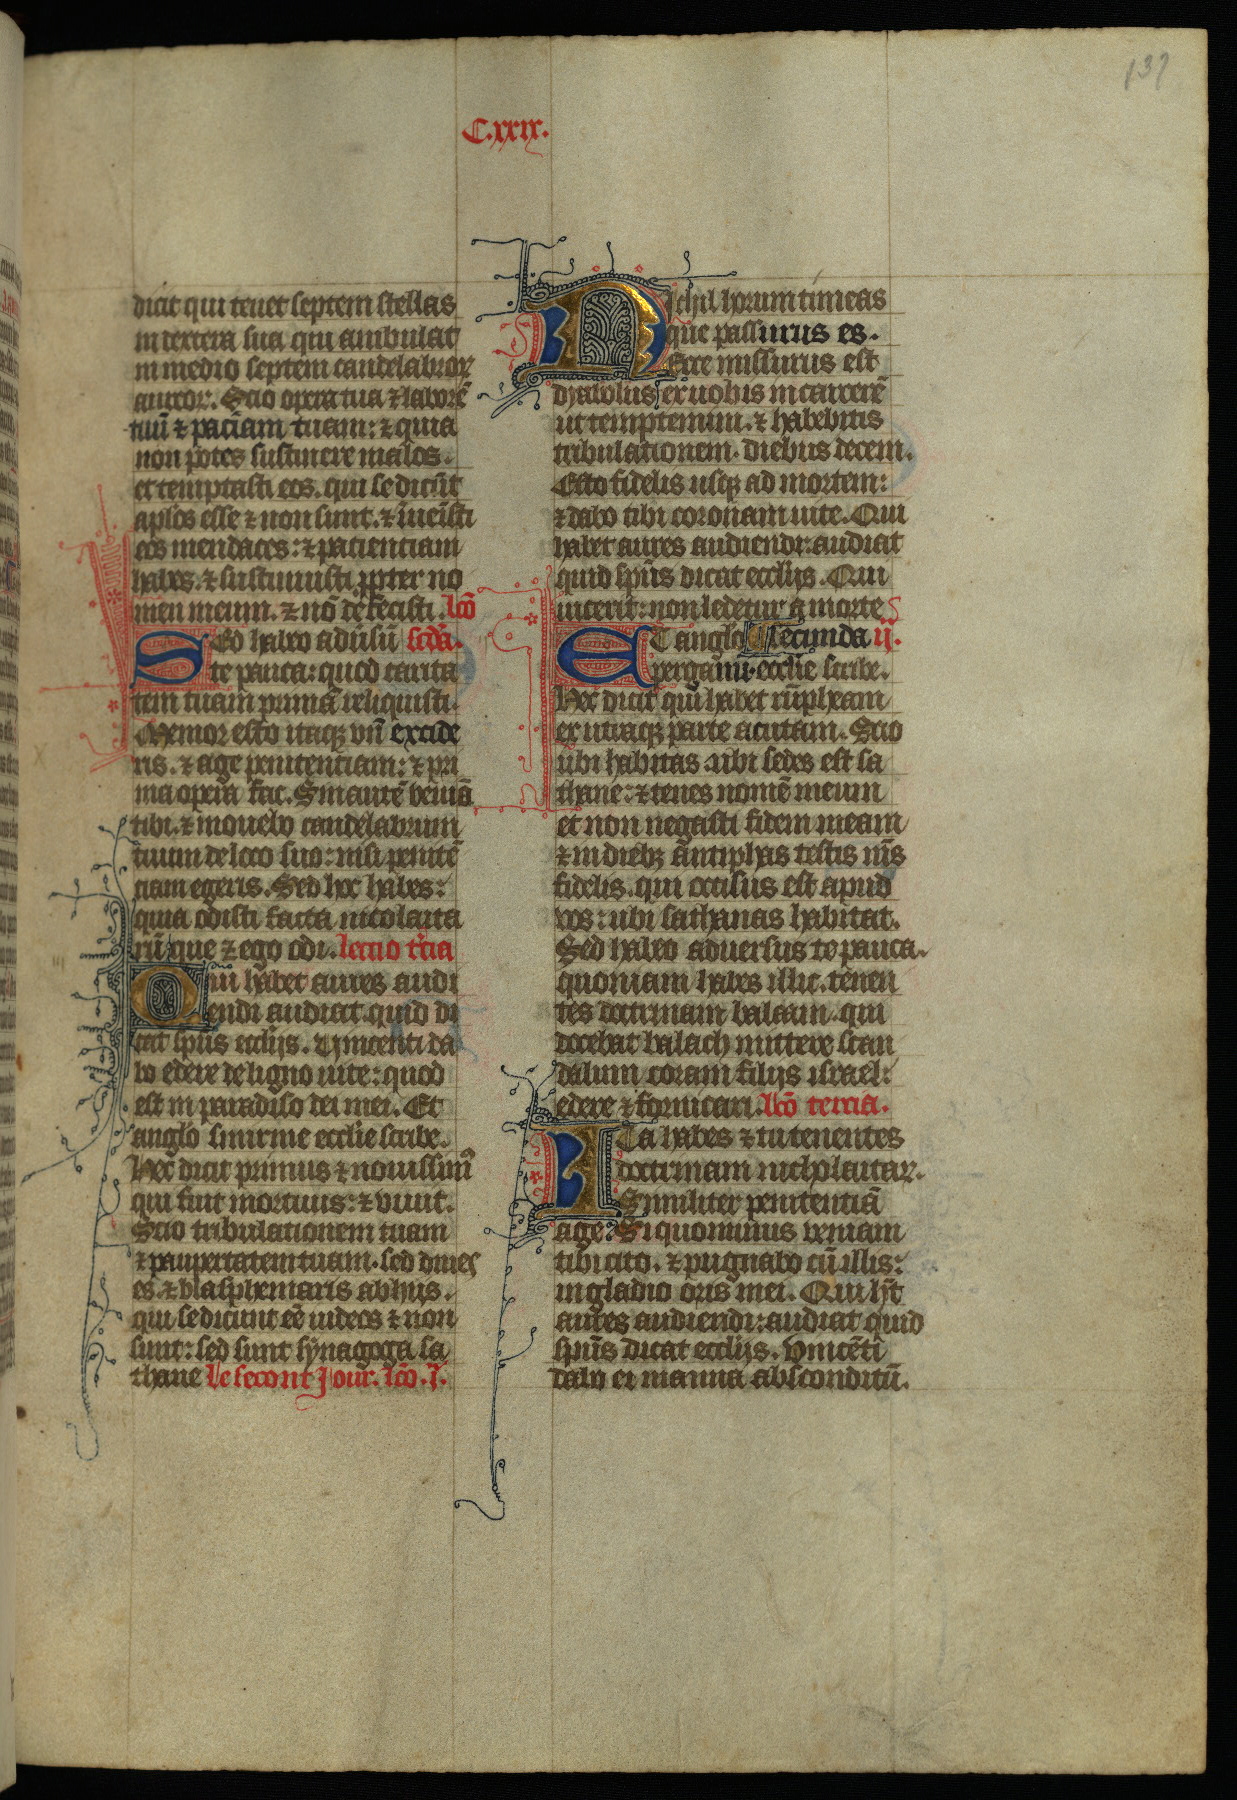 137
C.xxix.
dicit qui tenet septem stellas
in dextera sua qui ambulat
in medio septem candelabror
aureor. Scio opera tua ⁊ laborē
tuū ⁊ paciām tuam: ⁊ quia
non potes sustinere malos.
et temptasti eos. qui se dicūt
aplōs esse ⁊ non sunt. ⁊ īueīsti
eos mendaces: ⁊ patientiam
habes. ⁊ sustinuisti ꝓpter no
men meum. ⁊ nō defecisti. lcō
Sed habeo adūsū scdā.
te pauca: quod carita
tem tuam primā reliquisti.
Memor esto itaqꝫ vn̄ excide
ris. ⁊ age penitentiam: ⁊ pri
ma opera fac. Sin autē veniā
tibi. ⁊ mouebo candelabrum
tuum de loco suo: nisi penitē
tiam egeris. Sed hoc habes:
quia odisti facta nicolaita
rū que ⁊ ego odi. lectio t̄cia
Qui habet aures audi
endi audiat. quid di
cat sp̄us eccl̄ijs. Vincenti da
bo edere de ligno uite: quod
est in paradiso dei mei. Et
anglo smirne eccl̄ie scribe.
Hec dicit primus ⁊ nouissim̄
qui fuit mortuus: ⁊ viuit.
Scio tribulationem tuam
⁊ paupertatem tuam. sed diues
es. ⁊ blasphemaris ab hijs.
qui se dicunt eē iudeos ⁊ non
sunt: sed sunt synagoga sa
thane Le secont Jour. lcō. j.
Nichil horum timeas
que passurus es.
Ecce missurus est
dyabolus ex uobis in carcerē
ut temptemini. ⁊ habebitis
tribulationem. diebus decem.
Esto fidelis usqꝫ ad mortem:
⁊ dabo tibi coronam uite. Qui
habet aures audiendi: audiat
quid sp̄us dicat eccl̄ijs. Qui
uicerit: non ledetur a morte
Et anglo secunda ij.
pergami. eccl̄ie scribe.
Hec dicit qui habet rūpheam
ex utraqꝫ parte acutam. Scio
ubi habitas ubi sedes est sa
thane: ⁊ tenes nomē meum
et non negasti fidem meam
⁊ in diebꝫ antiphas testis m̄s
fidelis. qui occisus est apud
vos: ubi sathanas habitat.
Sed habeo aduersus te pauca.
quoniam habes illic. tenen
tes doctrinam balaam. qui
docebat balach mittere scan
dalum coram filijs israel:
edere ⁊ fornicari. lcō tercia.
Ita habes ⁊ tu tenentes
doctrinam nicholaitar.
Similiter penitentiā
age. Si quominus veniam
tibi cito. ⁊ pugnabo cū illis:
in gladio oris mei. Qui h̄t
aures audiendi: audiat quid
sp̄us dicat eccl̄ijs. Vincēti
dabo ei manna absconditū.